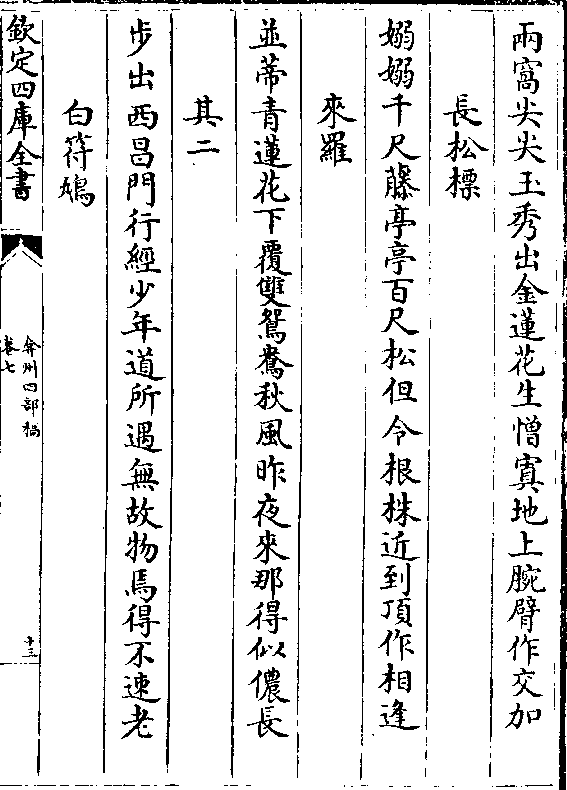 兩窩尖尖玉秀出金蓮花生憎寘地上腕臂作交加
長松標
嫋嫋千尺藤亭亭百尺松但令根株近到頂作相逢
來羅
並蒂青蓮花下覆雙鴛鴦秋風昨夜來那得似儂長
其二
步出西昌門行經少年道所遇無故物焉得不速老
白符鳩
欽定四庫全書
弇州四部稿
卷七
十三